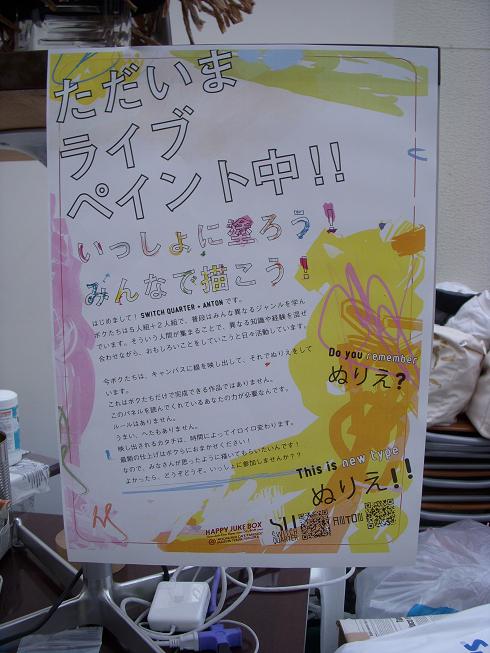 ただいま
ライブ
ペイント中!!
いっしょに塗ろう!
みんなで描こう!
はじめまして! SWITCH QUARTER + ANTON です。
ボクたちは5人組+2人組で、普段はみんな異なるジャンルを学ん
でいます。そういう人間が集まることで、異なる知識や経験を混ぜ
合わせながら、おもしろいことをしていこうと日々活動しています。
今ボクたちは、キャンバスに線を映し出して、それでぬりえをして
います。
これはボクたちだけで完成できる作品ではありません。
このパネルを読んでくれているあなたの力が必要なんです。
ルールはありません。
うまい、へたもありません。
映し出されるカタチは、時間によってイロイロ変わります。
最期の仕上げはボクらにおまかせください!
なので、みなさんが思ったように描いてもらいたいんです!
よかったら、どうぞどうぞ、いっしょに参加しませんか??
Do you remember
ぬりえ?
This is new type
ぬりえ!!
HAPPY JUKE BOX
SWITCH
QUARTER
ANTON